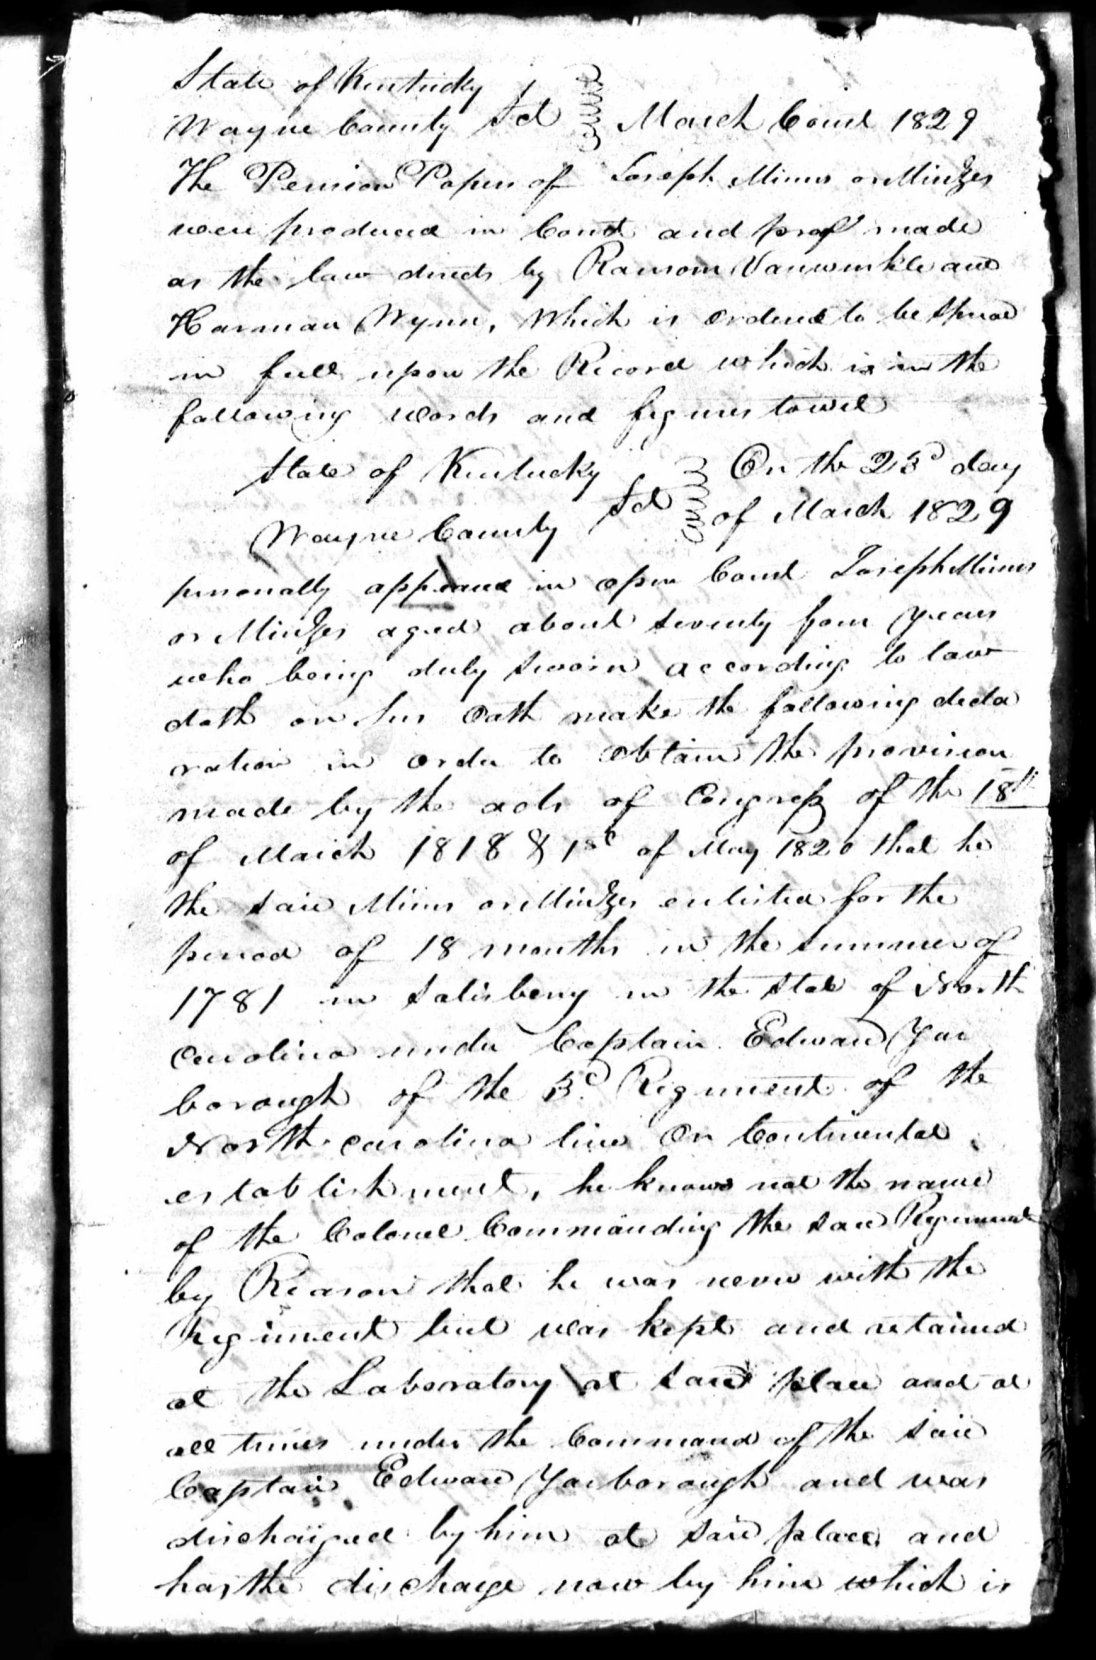 State of Kentucky
Wayne County Sct March Court 1829
The Pension Papers of Joseph Mims or Minzes
were produced in Court and proof made
as the law directs by Ransom Vanwinkle and
Harman Wynn, which is ordered to be spread
in full upon the Record which is in the
following words and figures towit
State of Kentucky On the 23d day
Wayne County Sct of March 1829
personally appeared in open Court Joseph Mims
or Minzes aged about seventy four years
who being duly sworn according to law
doth on his oath make the following decla
ration in order to obtain the provision
made by the acts of Congress of the 18th
of March 1818 & 1st of May 1820 that he
the said Mims or Minzes enlisted for the
period of 18 months in the summer of
1781 in Salisbery in the state of North
Carolina under Captain Edward Yar
borough of the 3d Regiment of the
North carolina line On Continental
establishment, he knows not the name
of the Colonel Commanding the said Regiment
by Reason that he was never with the
Regiment but was kept and retained
at the Laboratory at said place and at
all times under the Command of the said
Captain Edward Yarborough and was
discharged by him at said place and
has the discharge now by him which is